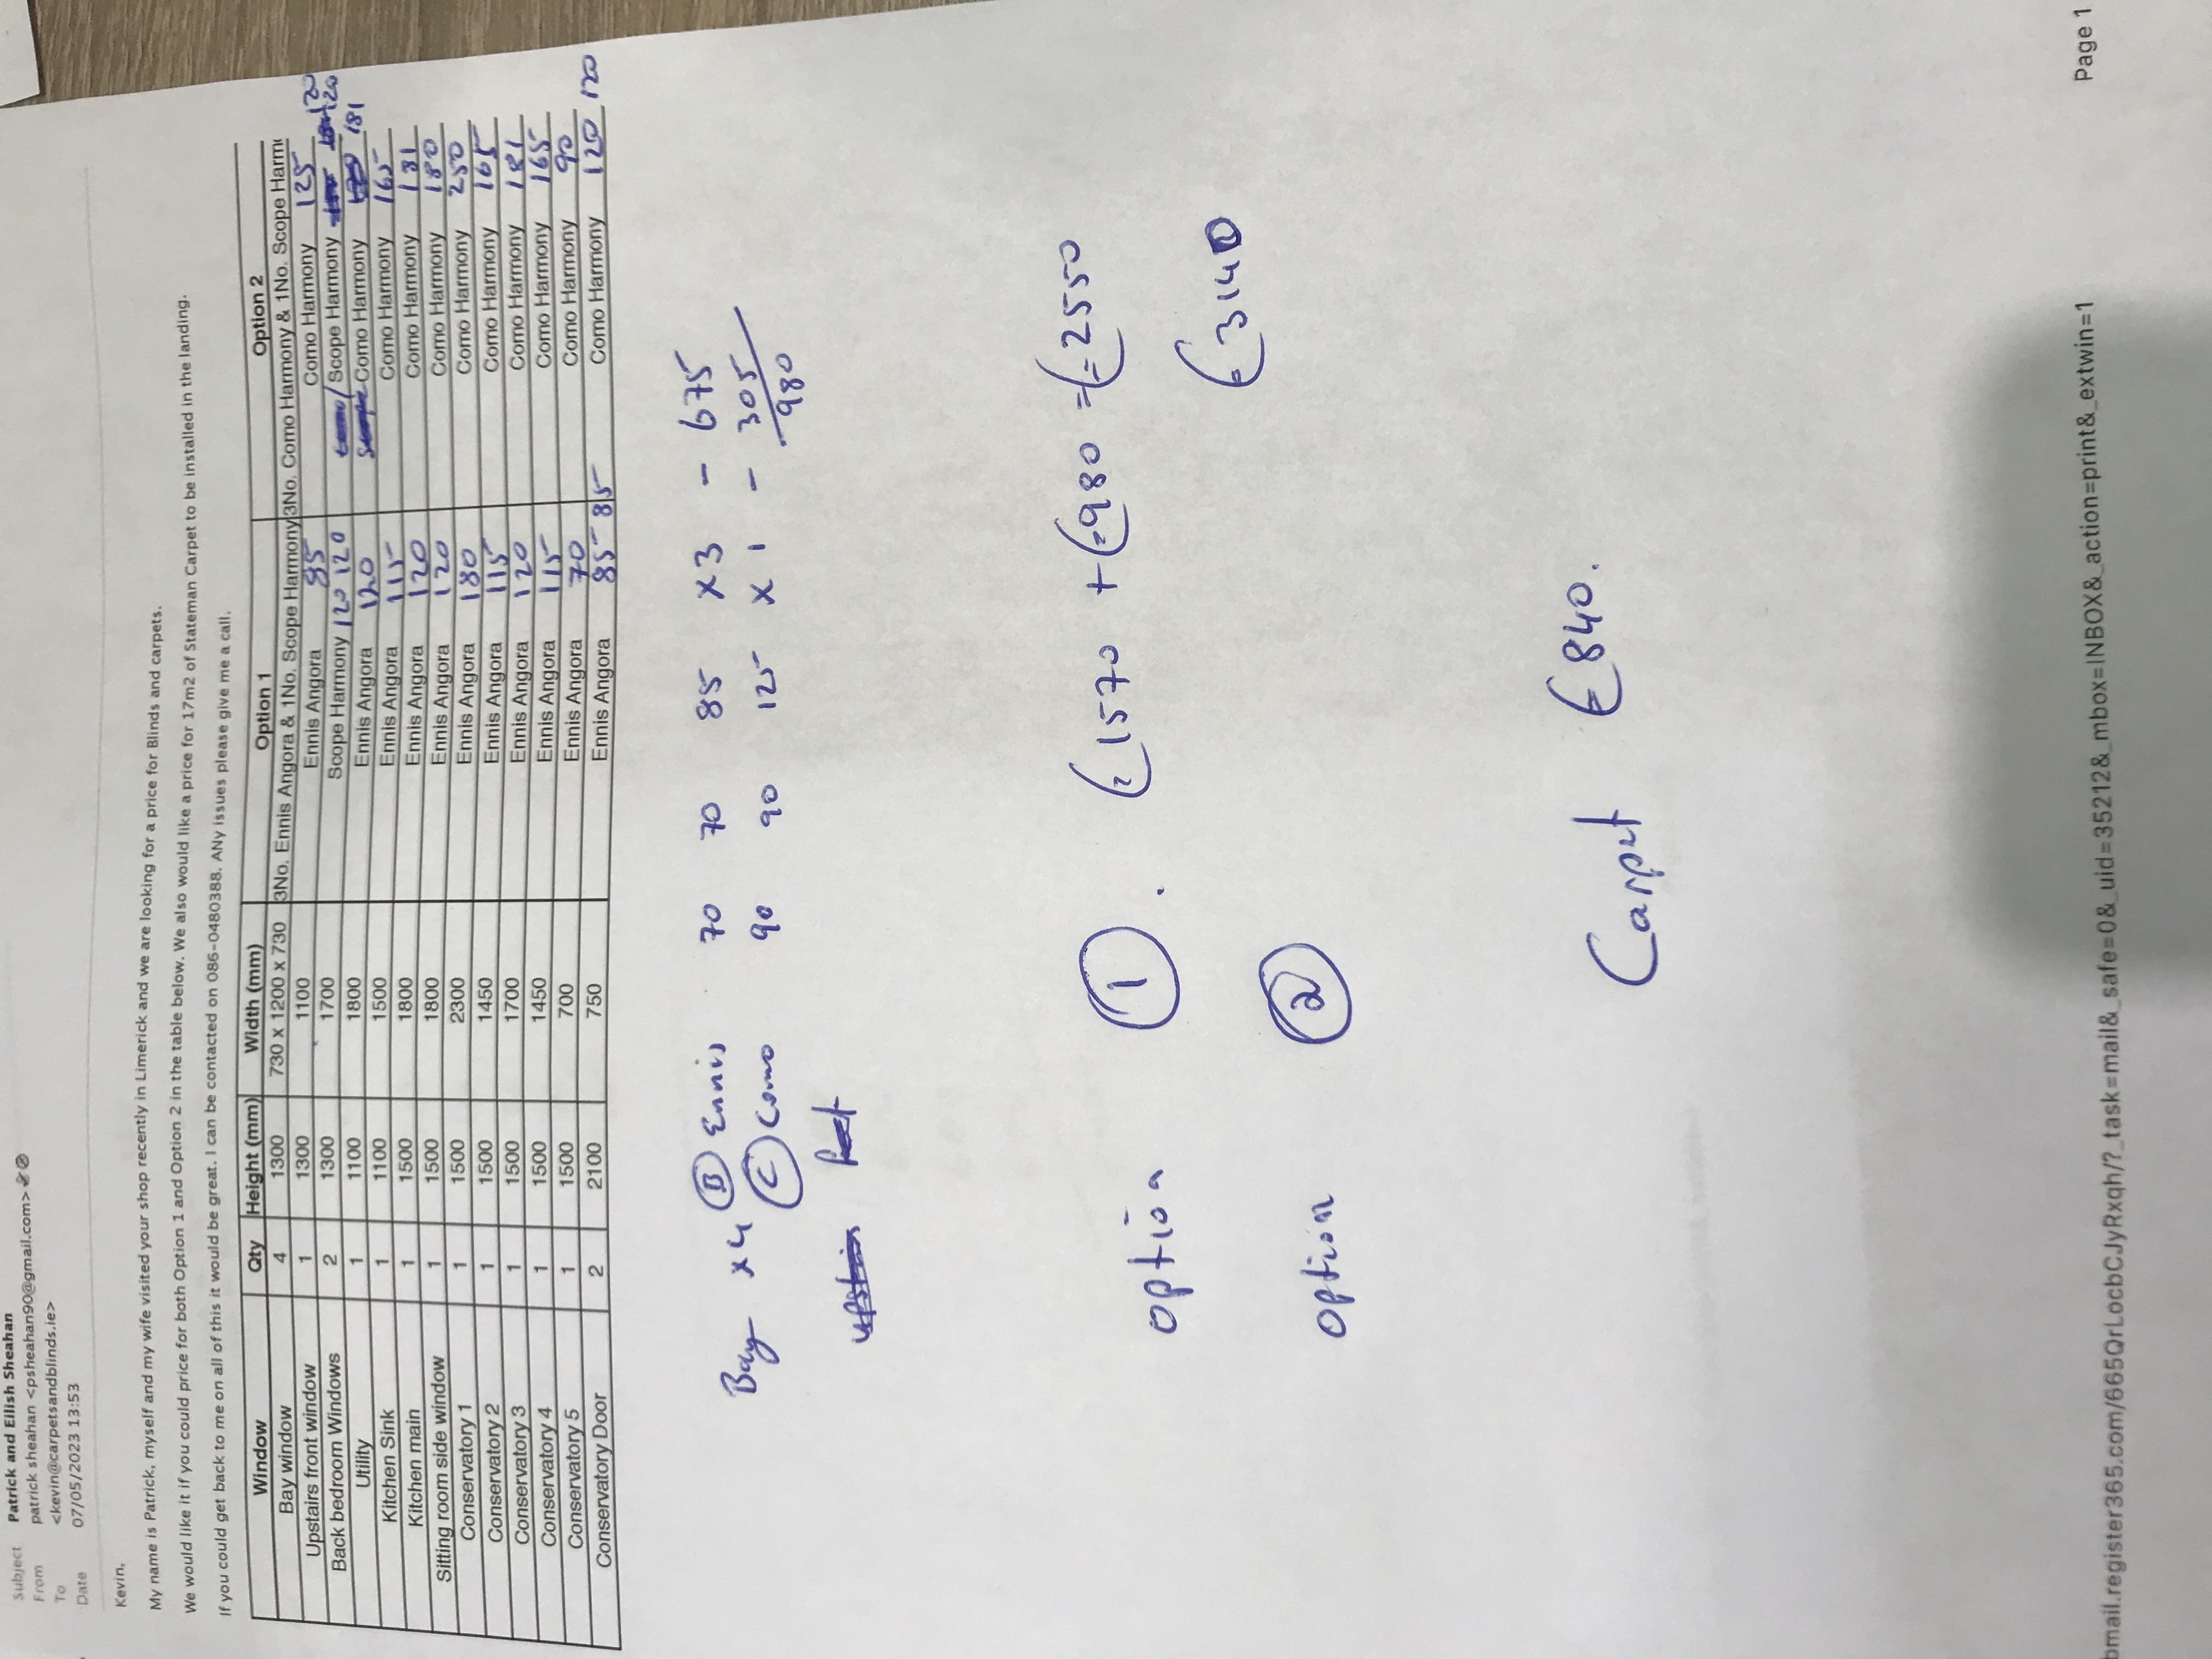 Subject Patrick and Eilish Sheahan
From patrick sheahan <psheahan90@gmail.com>
To <kevin@carpetsandblinds.ie>
Date 07/05/2023 13:53
Kevin,
My name is Patrick, myself and my wife visited your shop recently in Limerick and we are looking for a price for Blinds and carpets.
We would like it if you could price for both Option 1 and Option 2 in the table below. We also would like a price for 17m2 of Stateman Carpet to be installed in the landing.
If you could get back to me on all of this it would be great. I can be contacted on 086-0480388. ANy issues please give me a call.
Window Qty Height (mm) Width (mm) Option 1 Option 2
Bay window 4 1300 730 x 1200 x 730 3No. Ennis Angora & 1No. Scope Harmony 3No. Como Harmony & 1No. Scope Harm
Upstairs front window 1 1300 1100 Ennis Angora 85 Como Harmony 125 120
Back bedroom Windows 2 1300 1700 Scope Harmony 120 120 Como/ Scope Harmony 120
Utility 1 1100 1800 Ennis Angora 120 Scope Como Harmony 181
Kitchen Sink 1 1100 1500 Ennis Angora 115 Como Harmony 165
Kitchen main 1 1500 1800 Ennis Angora 120 Como Harmony 181
Sitting room side window 1 1500 1800 Ennis Angora 120 Como Harmony 180
Conservatory 1 1 1500 2300 Ennis Angora 180 Como Harmony 250
Conservatory 2 1 1500 1450 Ennis Angora 115 Como Harmony 165
Conservatory 3 1 1500 1700 Ennis Angora 120 Como Harmony 181
Conservatory 4 1 1500 1450 Ennis Angora 115 Como Harmony 165
Conservatory 5 1 1500 700 Ennis Angora 70 Como Harmony 90
Conservatory Door 2 2100 750 Ennis Angora 85 85 Como Harmony 120 120
Bay x4 B Ennis 70 70 85 x3 - 675
C Como 90 90 125 x 1 - 305
980
Option 1. €1570 + €980 = €2550
Option 2 €3140
Carpet €840.
bmail.register365.com/665QrLocbCJyRxqh/?_task=mail&_safe=0&_uid=35212&_mbox=INBOX&_action=print&_extwin=1 Page 1